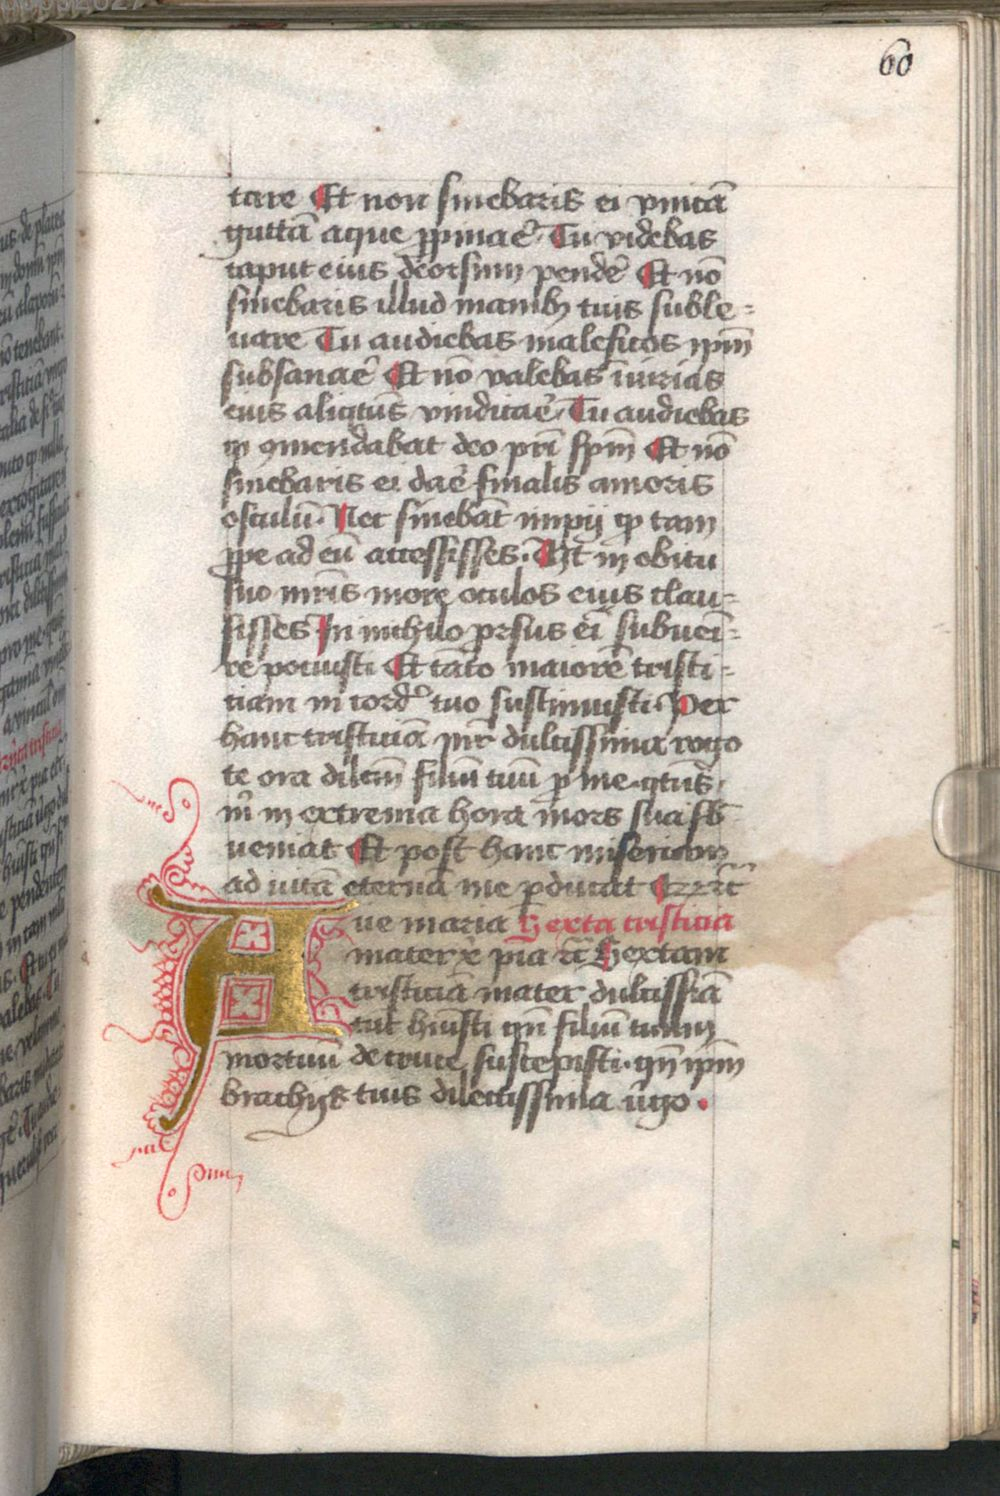 60
tare Et non sinebaris ei vnicā
guttā aque ꝓpinaē Tu videbas
caput eius deorsum pendē Et nō
sinebaris illud manibꝫ tuis suble-
uare Tu audiebas maleficos ipm̄
subsanaē Et nō valebas iniurias
eius aliqtus vindicaē Tu audiebas
ꝙ ꝯmendabat deo pri spm̄ Et nō
sinebaris ei daē finalis amoris
osculū. Nec sinebāt impij ꝙ tam
ꝓpe ad eū accessisses. Ut in obitu
suo mr̄is more oculos eius clau-
sisses In nichilo prsus ei subueni-
re potuisti Et tāto maiorē tristi-
tiam in corde tuo sustinuisti. Per
hanc tristiciā mr̄ dulcissima rogo
te ora dilcm̄ filiū tuū ꝓ me.
in extrema hora mors sua sb
ueniat Et post hanc miseriam
ad vitā eternā me ꝑducat
Aue maria Sexta tristicia
mater xp̄i pia rc̄ Sextam
tristiciā mater dulcissiā
tūc hūisti qn̄ filiū tuum
mortuū de cruce suscepisti. qn̄ ipm̄
brachijs tuis dilectissima v̄go.